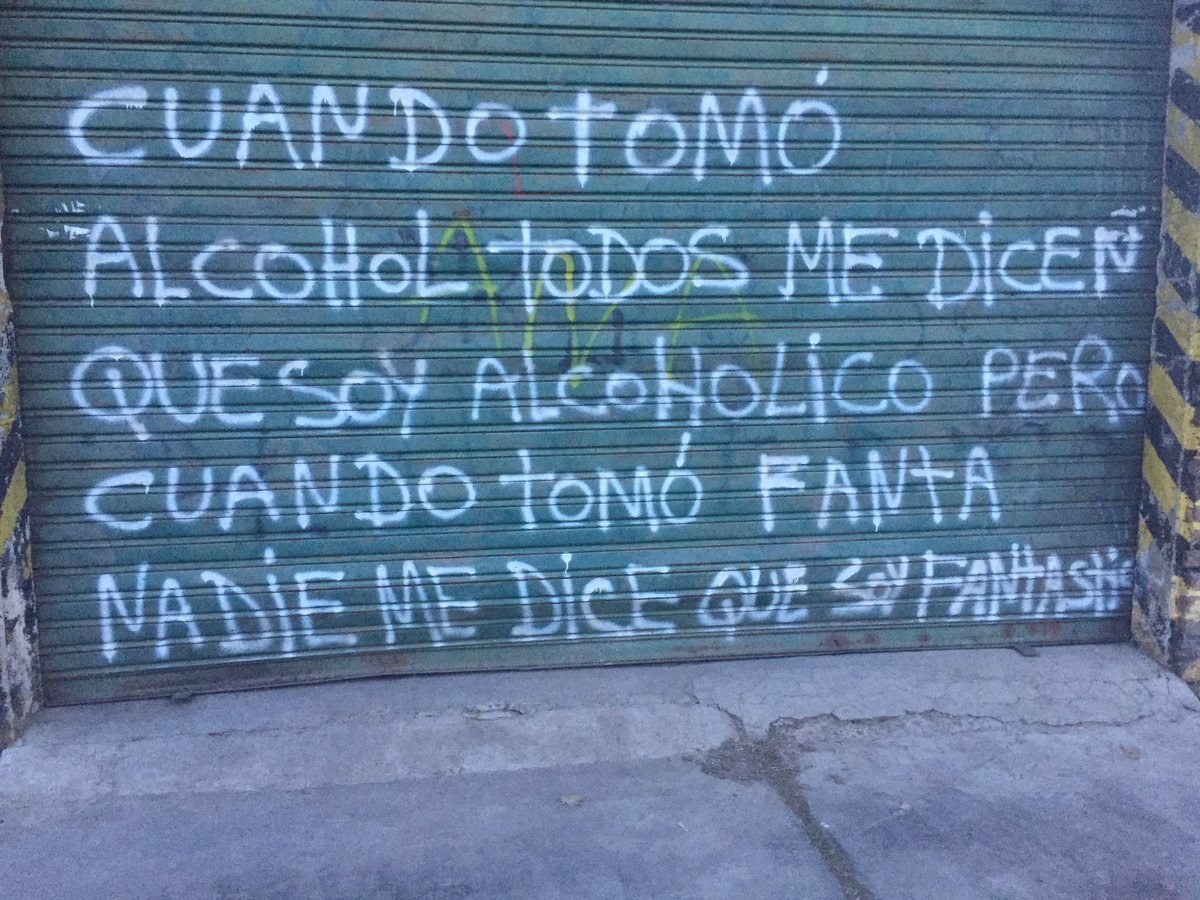 CUANDO TOMÓ
ALCOHOL TODOS ME DICEN
QUE SOY ALCOHOLICO PERO
CUANDO TOMÓ FANTA
NADIE ME DICE QUE SOY FANTASTIC